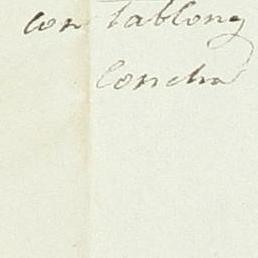 con tablong
Concha